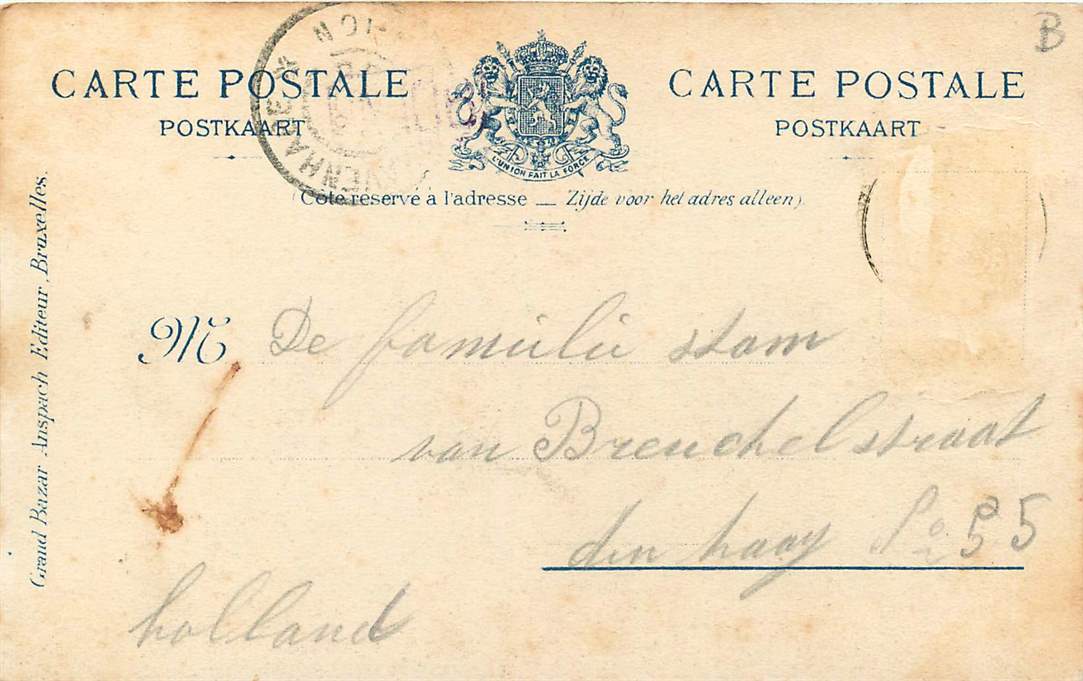 B
CARTE POSTALE
POSTKAART
CARTE POSTALE
POSTKAART
L'UNION FAIT LA FORCE
(Côté réservé à l'adresse — Zijde voor het adres alleen)
Grand Bazar Anspach Editeur, Bruxelles.
M De familie stam
van Breuchelstraat
den haag No 55
holland